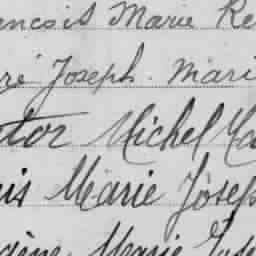 ancois Marie Re
ré Joseph. Mari
ctor Michel Ma
is Marie Josep
gène Marie